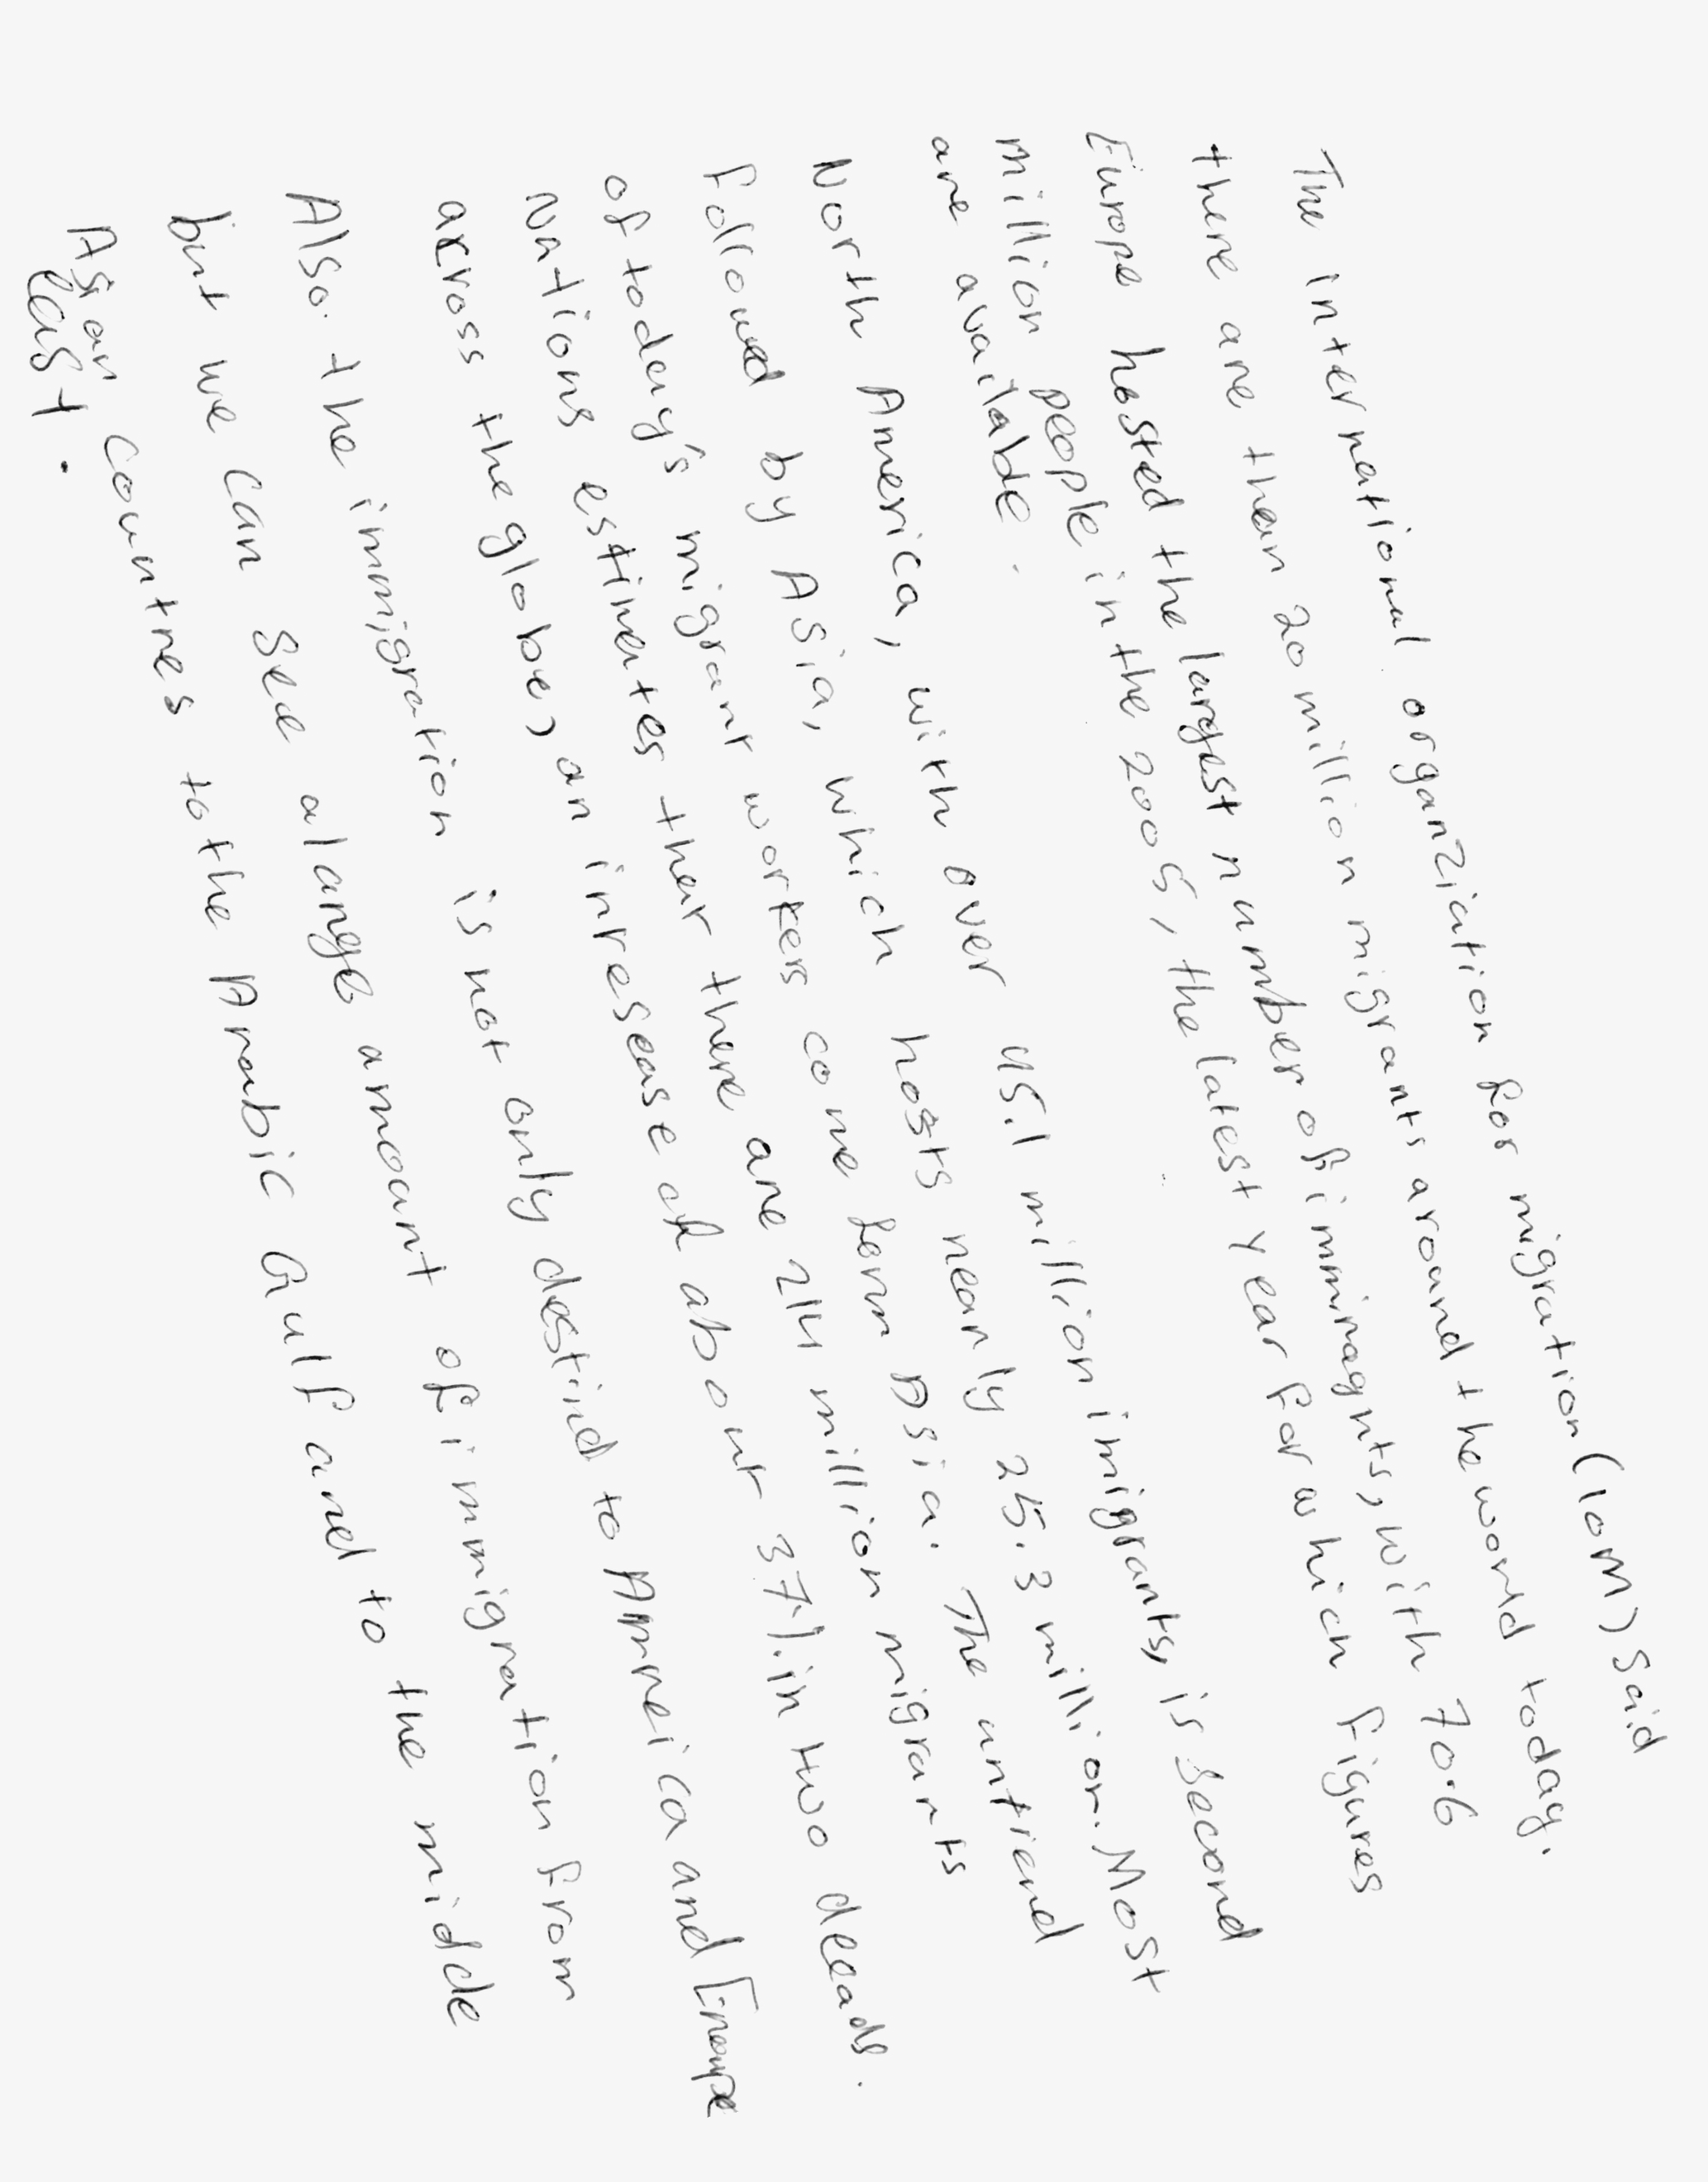 The international organziation for migration (IOM) said
there are than 20 million migrants around the world today.
Europe hosted the largest number of imminagnts, with 70.6
million people in the 2005, the latest year for which figures
are availabde.
North America, with over 45.1 million imigrants, is second
followed by Asia, which hosts nearly 25.3 million. Most
of today's migrant workers come form Asia. The untiend
Nations estimates that there are 214 million migrants
across the globe, an inresease of about 37% in two deeads.
Also. the immigration is not only destind to Amreica and Eineupe
but we can see alange amoant of immigration from
Asian countres to the Arabic Gulf and to the midde
east.